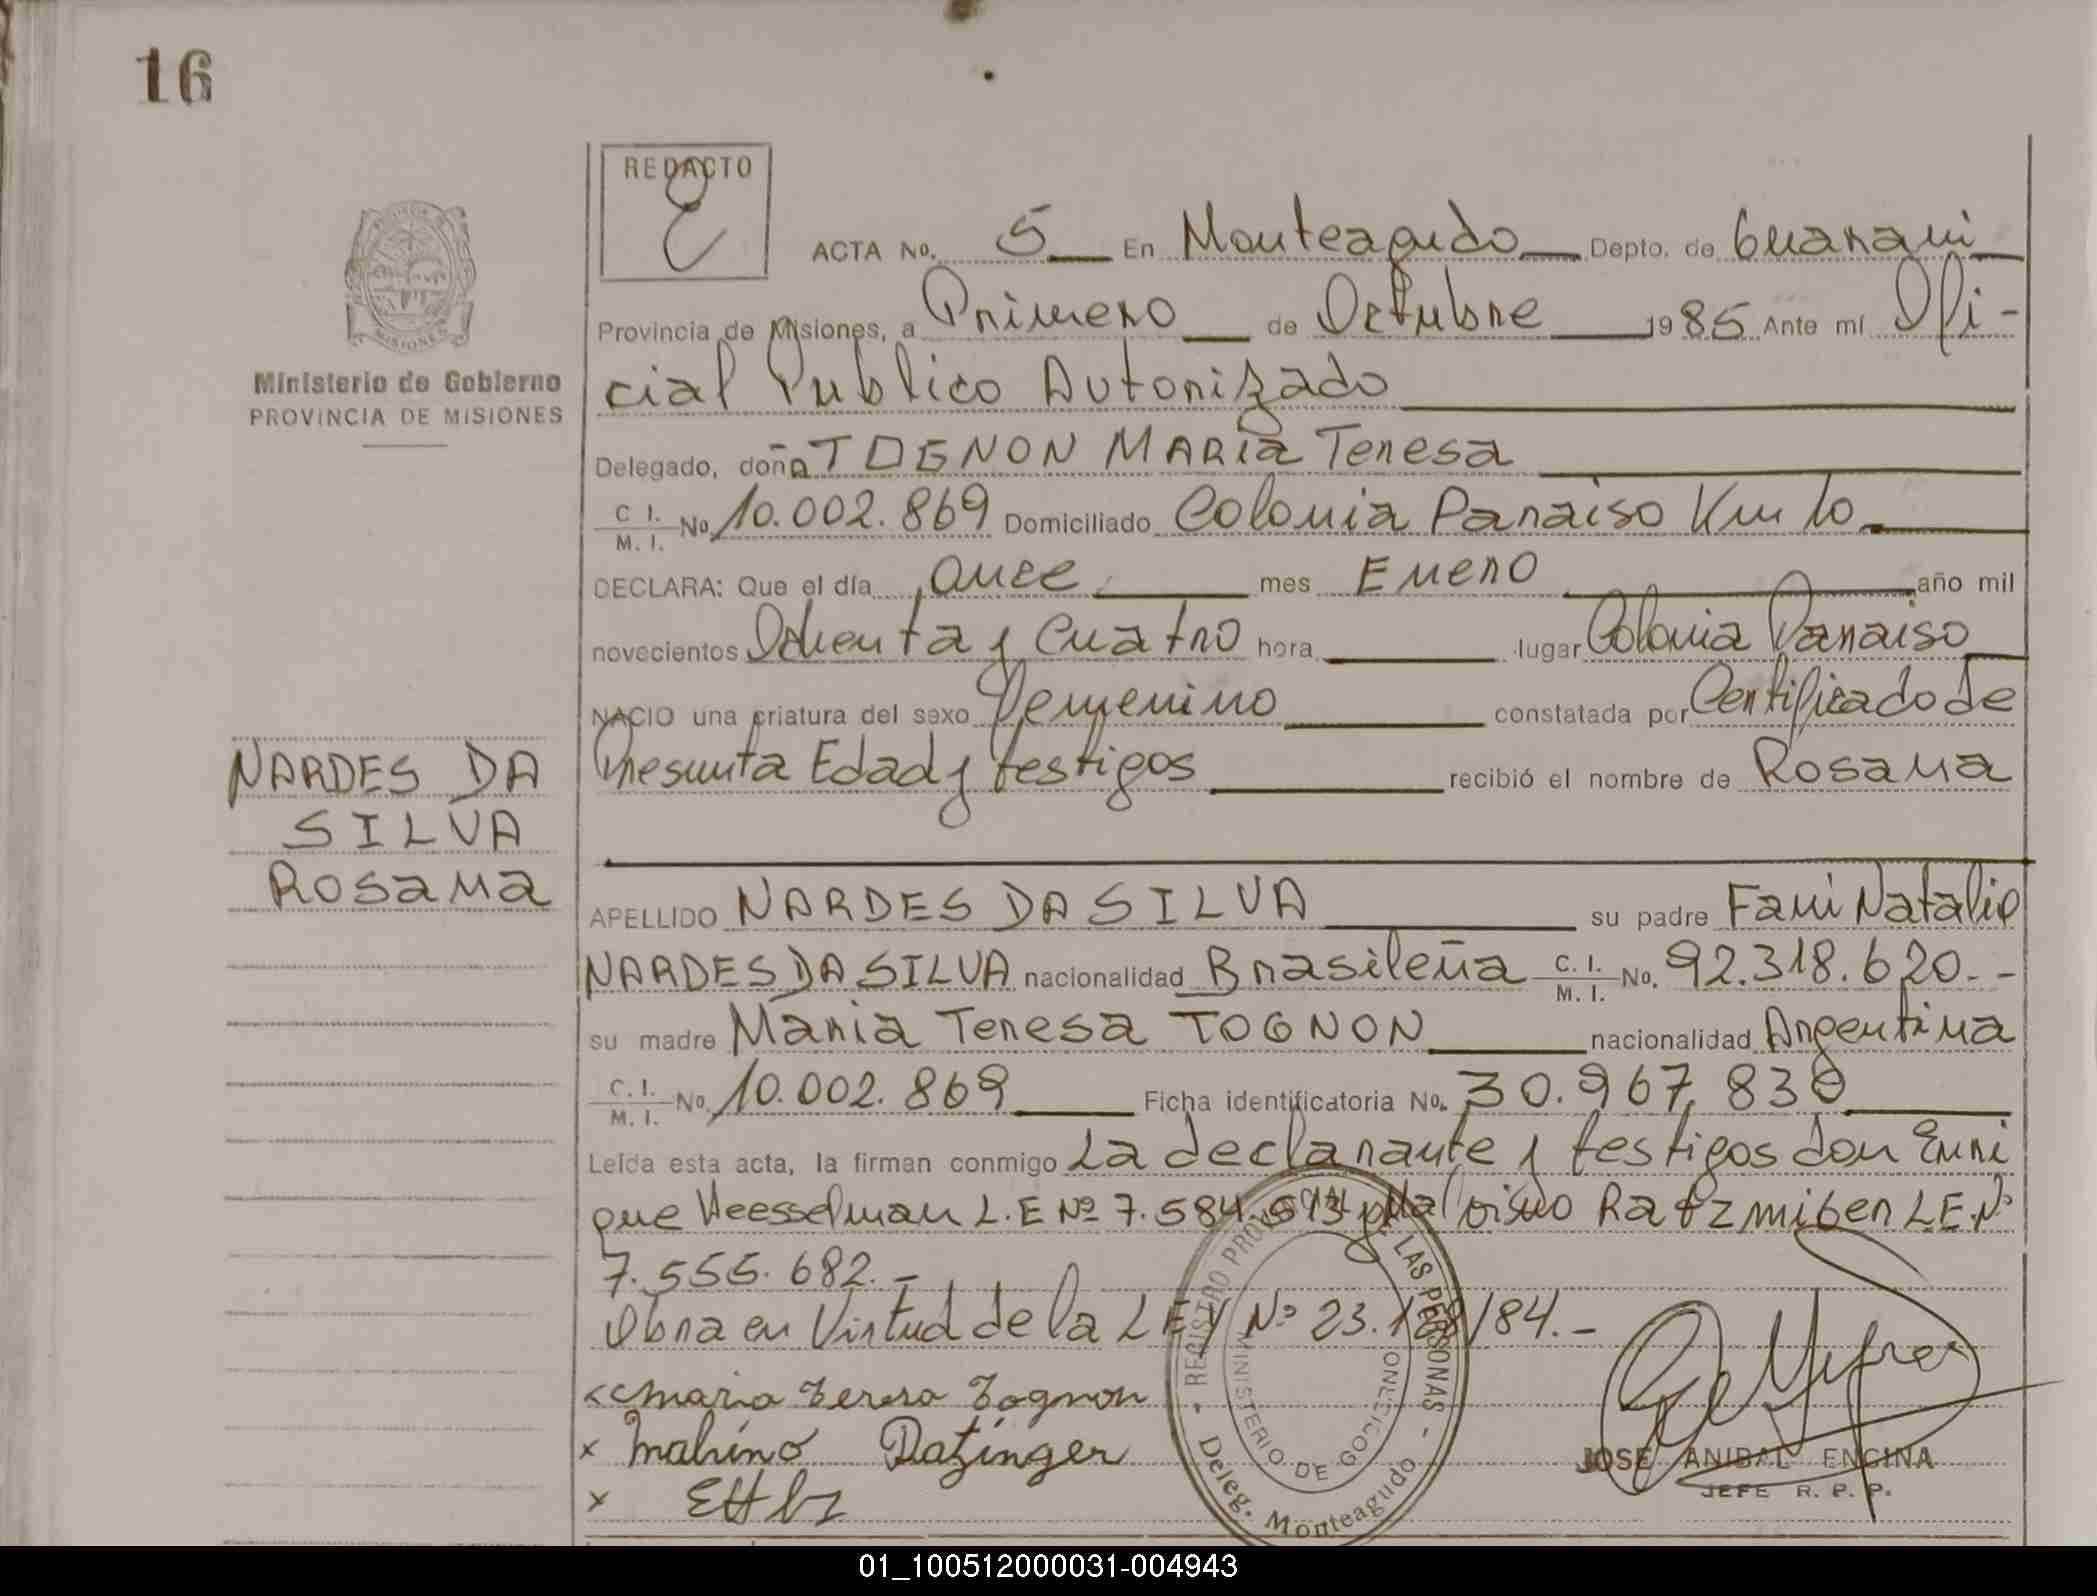 16
REDACTO
ACTA No. 5 En Monteagudo Depto. de Guarani
Provincia de Misiones, a Primero de Octubre 1985 Ante mí Ofi-
cial Publico Autorizado
Delegado, doña TOGNON MARIA Teresa
C. I. M. I. No. 10.002.869 Domiciliado Colonia Paraiso Km 10
DECLARA: Que el día once mes Enero año mil
novecientos Ochenta y Cuatro hora lugar Colonia Paraiso
NACIO una criatura del sexo Femenino constatada por Certificado de
Presunta Edad y testigos recibió el nombre de Rosana
APELLIDO NARDES DA SILVA su padre Fani Natalio
NARDES DA SILVA nacionalidad Brasileña C. I. M. I. No. 92.318.620.--
su madre Maria Teresa TOGNON nacionalidad Argentina
C. I. M. I. No. 10.002.869 Ficha identificatoria No. 30.967.830
Leída esta acta, la firman conmigo La declarante y testigos don Enri
que Heesselman L.E Nº 7.584.513 y L.E.Nº
7.555.682.-
Obra en Virtud de la LEY Nº 23.1 /84.-
Maria Teresa Tognon
x Ratzinger
x
Ministerio de Gobierno
PROVINCIA DE MISIONES
MISIONES
NARDES DA
SILVA
Rosana
- REGISTRO PROVINCIAL LAS PERSONAS -
MINISTERIO DE GOBIERNO
Deleg. Monteagudo
JOSE ANIBAL ENCINA
JEFE R. P. P.
01_100512000031-004943